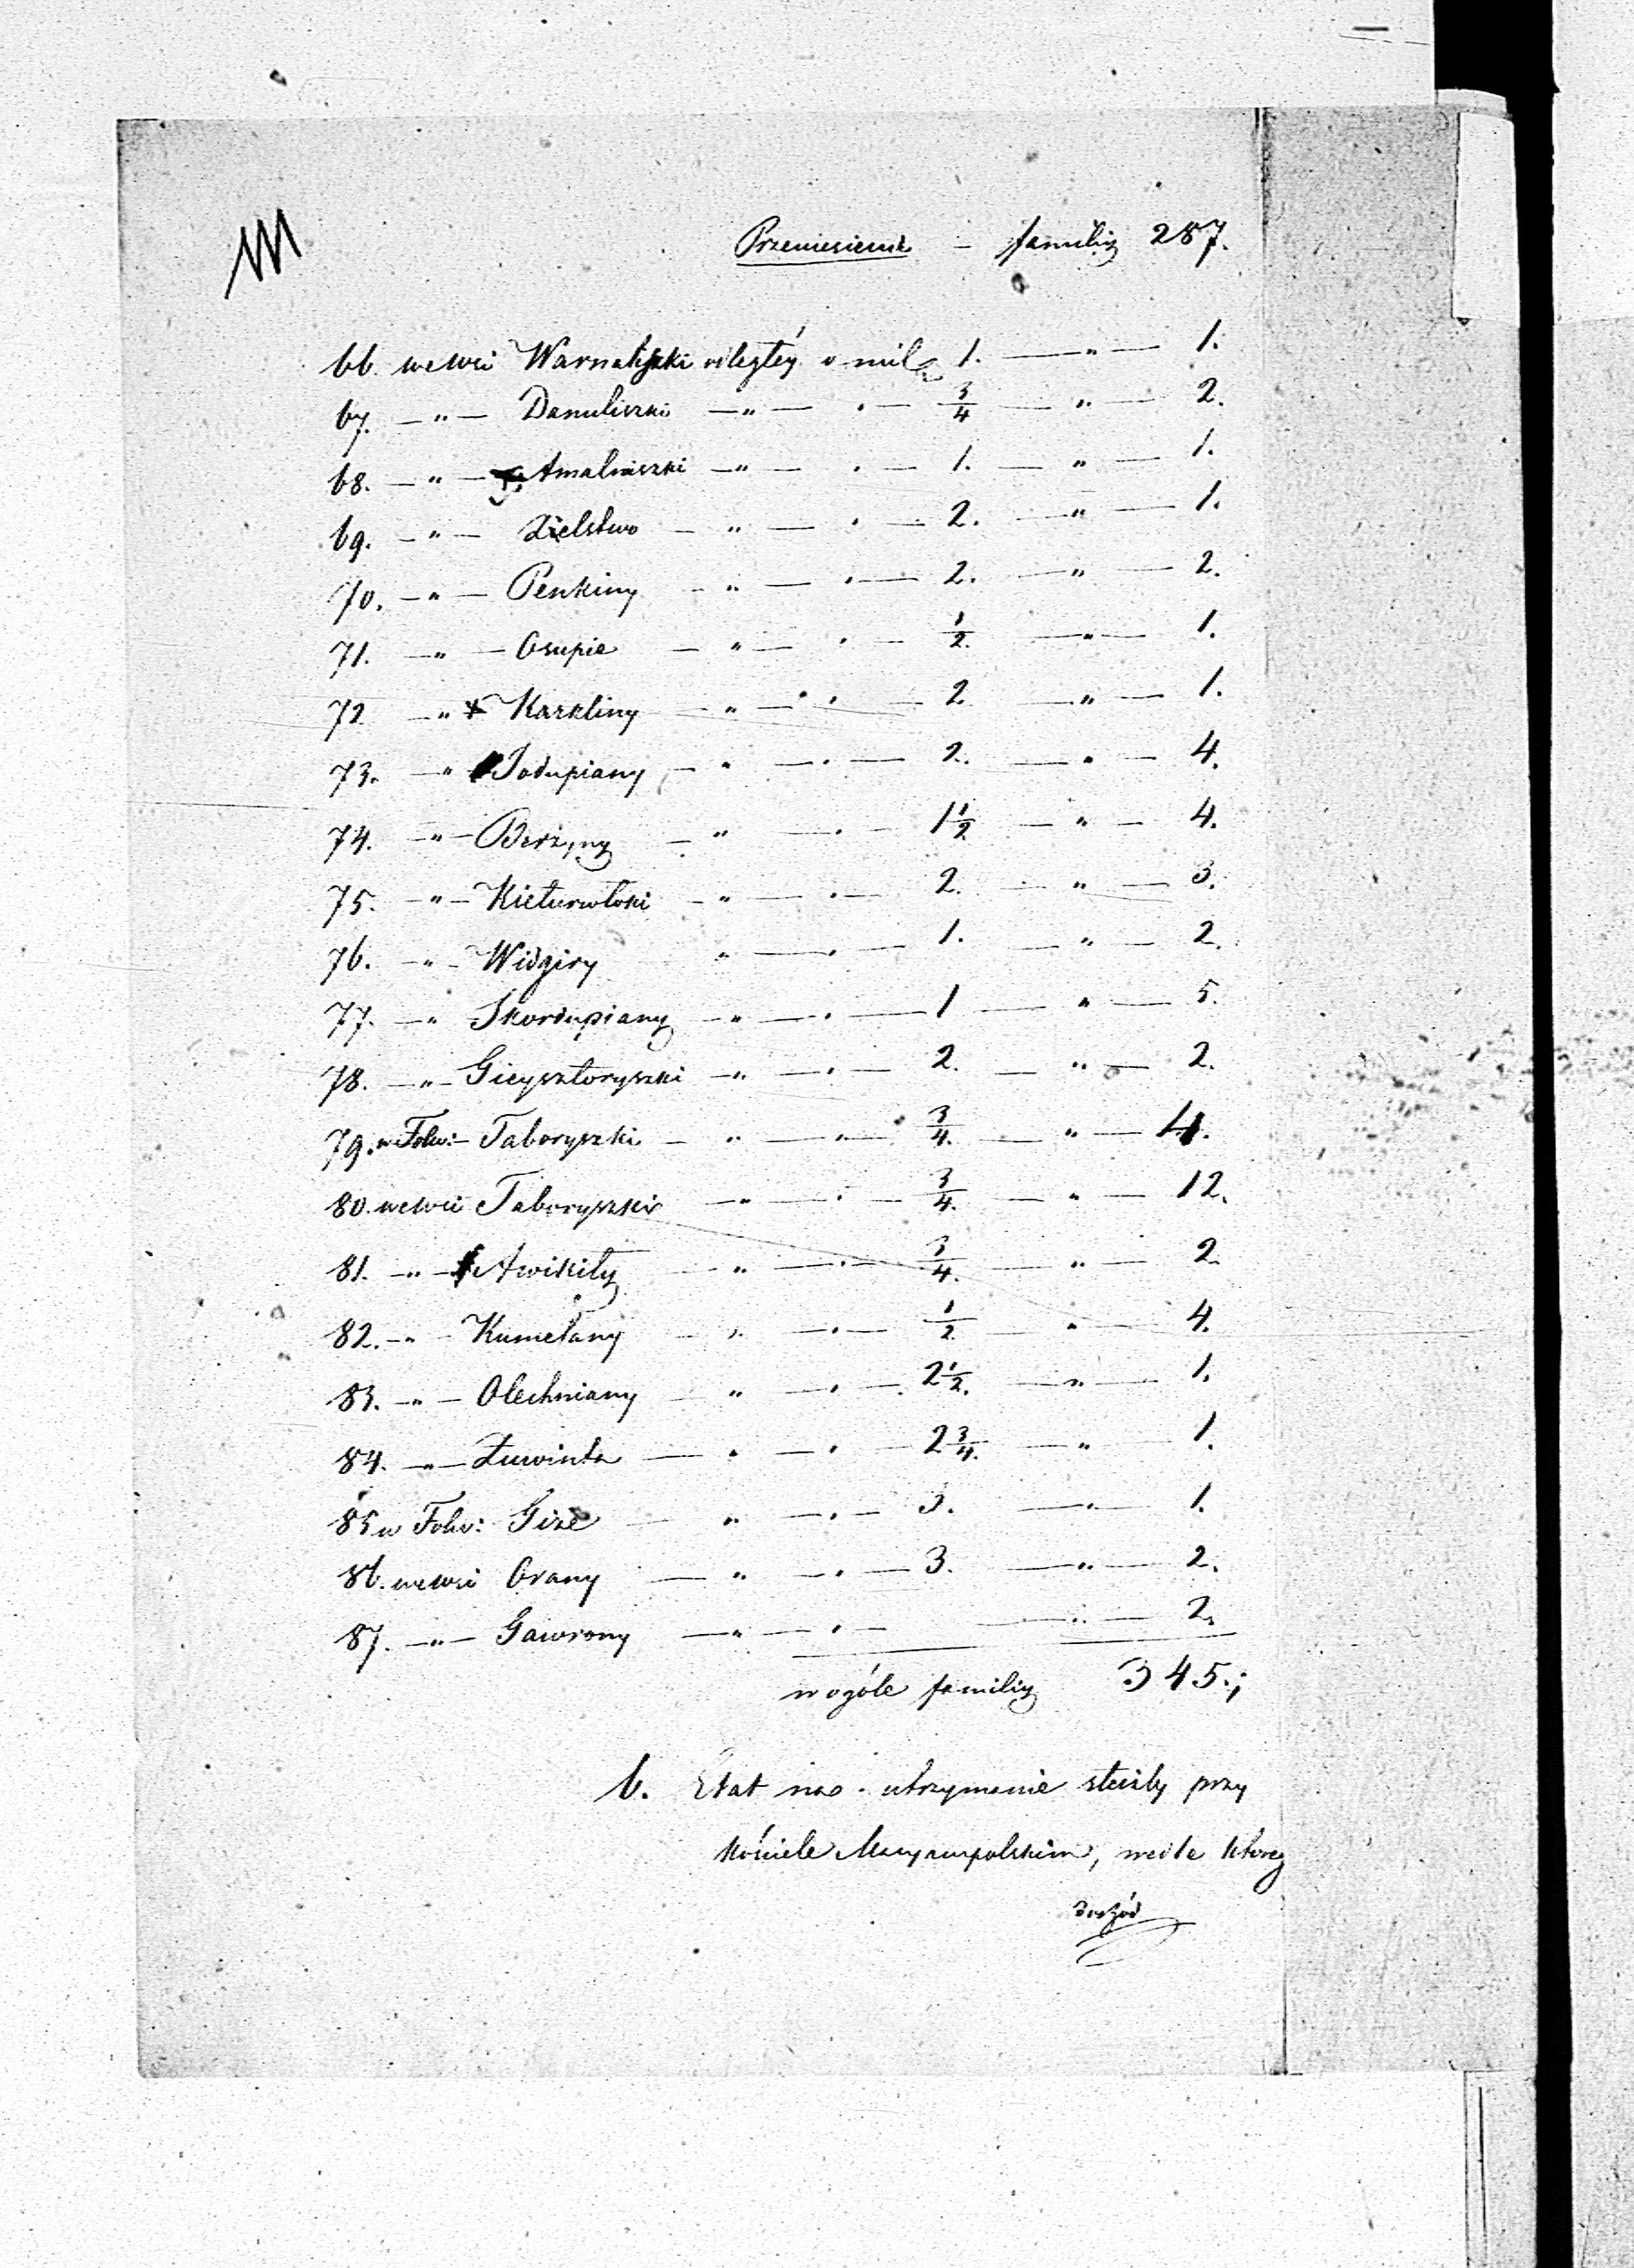 Przeniesienie – familij 287.
66. we wsi Warnaliszki odległéj o milę 1. —"— 1.
67. —"— Danuliszki —"— . — 3/4 — " — 2.
68. —" — Amaliszki —" — . — 1. — " — 1.
69. —"— Zielstwo — " — . — 2. —"— 1.
70. —"— Penkiny — " — . — 2. —"— 2.
71. —"— Osupie — " — . — 1/2. —"— 1.
72 —" Karkliny — " — . — 2 —"— 1.
73. —" Jodupiany — " — . — 2. — " — 4.
74. —"— Berżyny — " — . — 1 1/2 — " — 4.
75. —"— Kieturwłoki — " — . — 2. — " — 3.
76. —"— Widgiry " — . — 1. — " — 2.
77. —" Skordupiany —"— . — 1 — " — 5.
78. —"— Gieysztoryszki —"— . — 2. — " — 2.
79. w Folw: Taboryszki — " — " — 3/4. — " — 4.
80. we wsi Taboryszki —"— . — 3/4. — " — 12.
81. —"— Awikiły — " — . — 3/4. — " — 2
82. —"— Kumelany — " — . — 1/2. — " — 4.
83. —"— Olechniany — " — . — 2 1/2. —"— 1.
84. —"— Żuwinta — " — . — 2 3/4. —"— 1.
85 w Folw: Giże — " — . — 3. —"— 1.
86. we wsi Orany — " — . — 3. —"— 2.
87. —"— Gawrony —"— . — —"— 2.
w ogóle familij 345.;
6. Etat na utrzymanie służby przy
kościele Maryampolskim, wedle którego
dochód